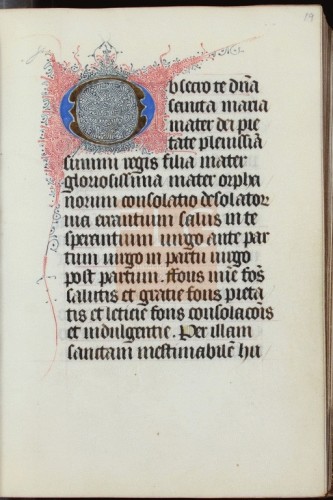 19
Obsecro te dn̄a
sancta maria
mater dei pie
tate plenissīa
summi regis filia mater
gloriosissima mater orpha
norum consolatio desolator
via errantium salus in te
sperentium virgo ante par
tum virgo in partu virgo
post partum. Fons mīe fōs
salutis et gratie fons pieta
tis et leticie fons consolacōis
et indulgentie. Per illam
sanctam inestimabilē hu